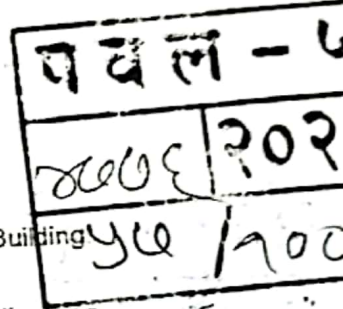 प व ल -
४७७६ २०२
Building ५७ /१००